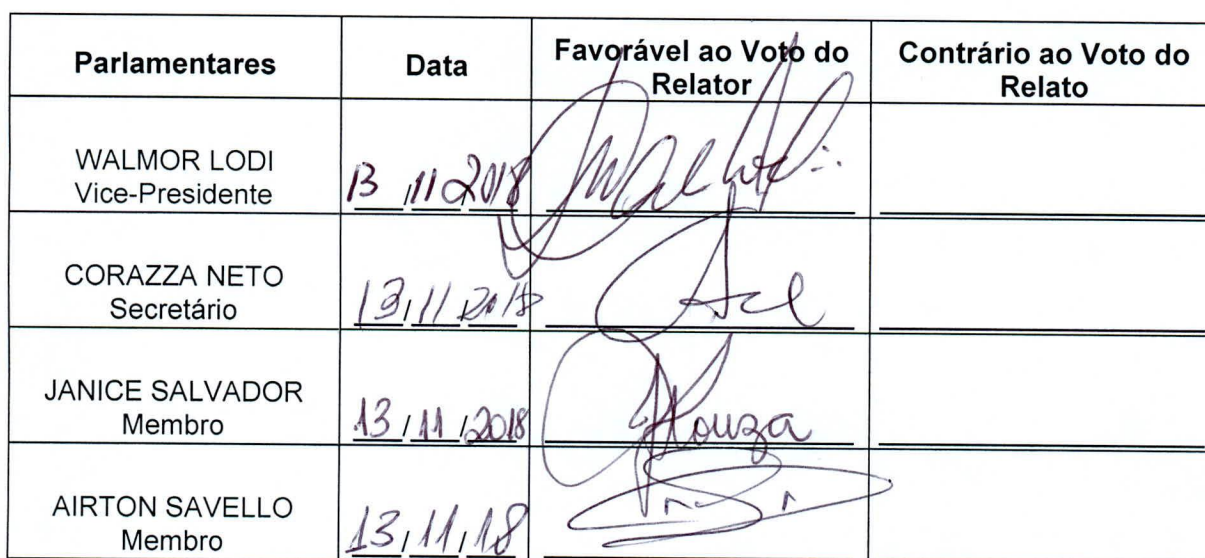 Parlamentares Data Favorável ao Voto do Relator Contrário ao Voto do Relato
WALMOR LODI
Vice-Presidente 13/11/2018
CORAZZA NETO
Secretário 13/11/2018
JANICE SALVADOR
Membro 13/11/2018 Souza
AIRTON SAVELLO
Membro 13/11/18